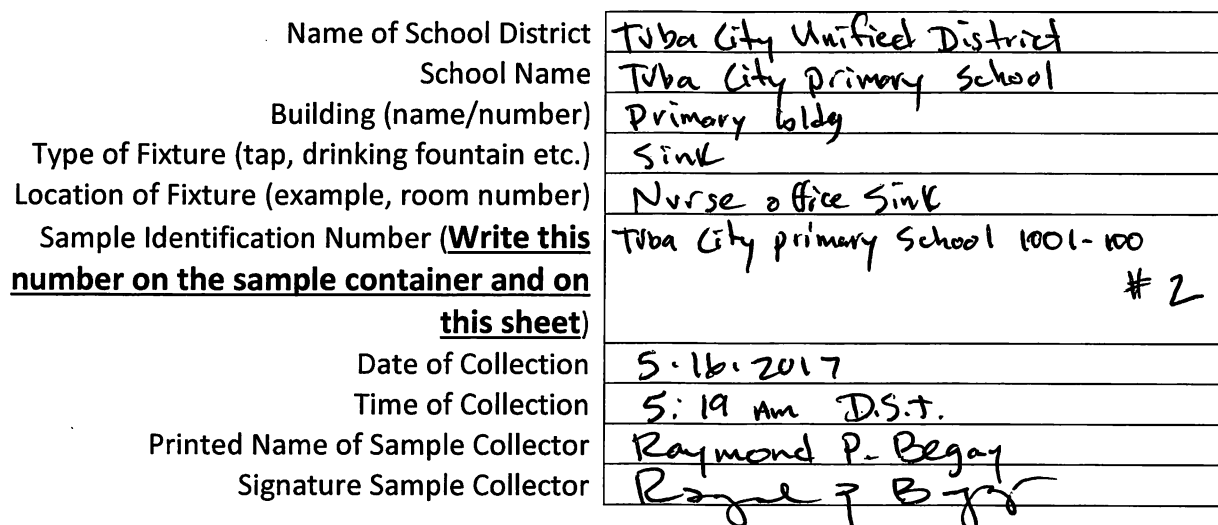 Name of School District Tuba City Unified District
School Name Tuba City primary School
Building (name/number) Primary bldg
Type of Fixture (tap, drinking fountain etc.) Sink
Location of Fixture (example, room number) Nurse office Sink
Sample Identification Number (Write this Tuba City primary School 1001-100
number on the sample container and on #2
this sheet)
Date of Collection 5.16.2017
Time of Collection 5:19 Am D.S.T.
Printed Name of Sample Collector Raymond P. Begay
Signature Sample Collector